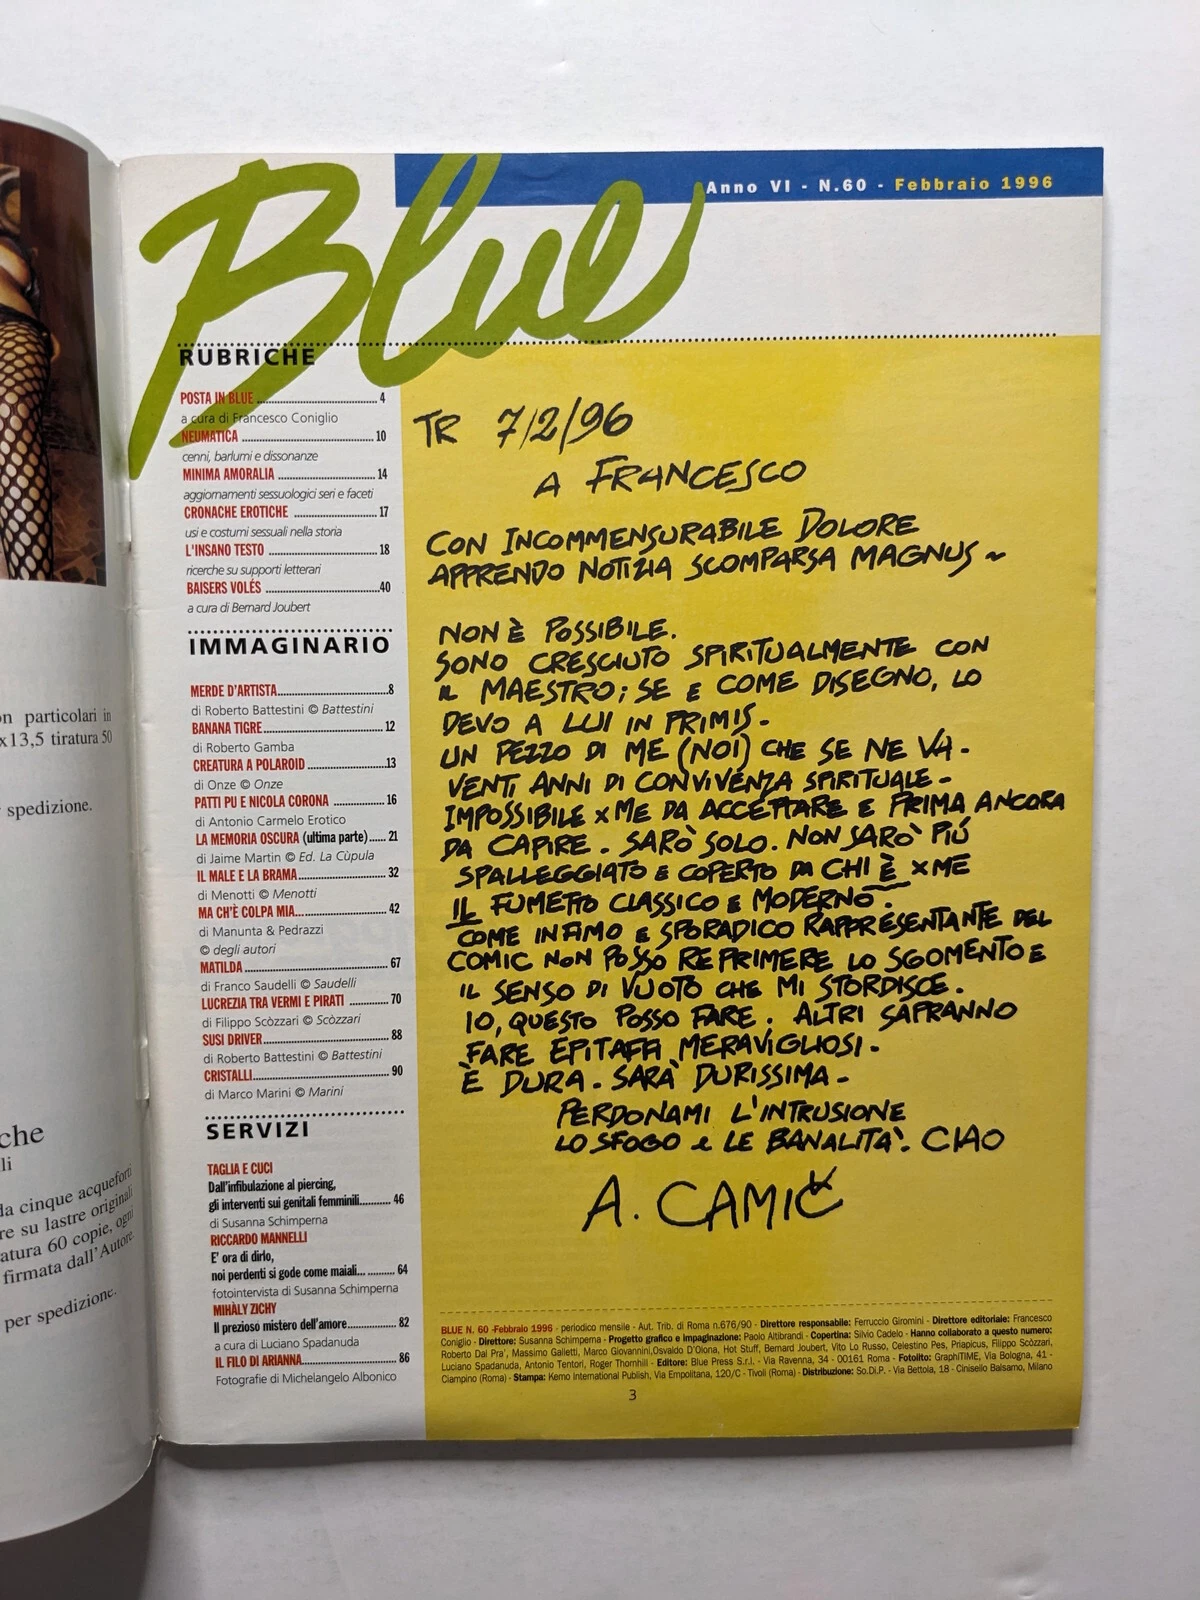 on particolari in
x13,5 tiratura 50
spedizione.
che
li
da cinque acqueforti
re su lastre originali
atura 60 copie, ogni
firmata dall'Autore.
per spedizione.
Blue
Anno VI - N.60 - Febbraio 1996
RUBRICHE
POSTA IN BLUE 4
a cura di Francesco Coniglio
NEUMATICA 10
cenni, barlumi e dissonanze
MINIMA AMORALIA 14
aggiornamenti sessuologici seri e faceti
CRONACHE EROTICHE 17
usi e costumi sessuali nella storia
L'INSANO TESTO 18
ricerche su supporti letterari
BAISERS VOLÉS 40
a cura di Bernard Joubert
IMMAGINARIO
MERDE D'ARTISTA 8
di Roberto Battestini © Battestini
BANANA TIGRE 12
di Roberto Gamba
CREATURA A POLAROID 13
di Onze © Onze
PATTI PU E NICOLA CORONA 16
di Antonio Carmelo Erotico
LA MEMORIA OSCURA (ultima parte) 21
di Jaime Martin © Ed. La Cùpula
IL MALE E LA BRAMA 32
di Menotti © Menotti
MA CH'È COLPA MIA... 42
di Manunta & Pedrazzi
© degli autori
MATILDA 67
di Franco Saudelli © Saudelli
LUCREZIA TRA VERMI E PIRATI 70
di Filippo Scòzzari © Scòzzari
SUSI DRIVER 88
di Roberto Battestini © Battestini
CRISTALLI 90
di Marco Marini © Marini
SERVIZI
TAGLIA E CUCI
Dall'infibulazione al piercing,
gli interventi sui genitali femminili 46
di Susanna Schimperna
RICCARDO MANNELLI
E' ora di dirlo,
noi perdenti si gode come maiali... 64
fotointervista di Susanna Schimperna
MIHÀLY ZICHY
Il prezioso mistero dell'amore 82
a cura di Luciano Spadanuda
IL FILO DI ARIANNA 86
Fotografie di Michelangelo Albonico
TR 7/2/96
A FRANCESCO
CON INCOMMENSURABILE DOLORE
APPRENDO NOTIZIA SCOMPARSA MAGNUS ~
NON È POSSIBILE.
SONO CRESCIUTO SPIRITUALMENTE CON
IL MAESTRO; SE E COME DISEGNO, LO
DEVO A LUI IN PRIMIS -
UN PEZZO DI ME (NOI) CHE SE NE VA -
VENTI ANNI DI CONVIVENZA SPIRITUALE -
IMPOSSIBILE x ME DA ACCETTARE E PRIMA ANCORA
DA CAPIRE. SARÒ SOLO. NON SARÒ PIÚ
SPALLEGGIATO E COPERTO DA CHI È x ME
IL FUMETTO CLASSICO E MODERNO.
COME INFIMO E SPORADICO RAPPRESENTANTE DEL
COMIC NON POSSO REPRIMERE LO SGOMENTO E
IL SENSO DI VUOTO CHE MI STORDISCE.
IO, QUESTO POSSO FARE. ALTRI SAPRANNO
FARE EPITAFFI MERAVIGLIOSI.
È DURA. SARÀ DURISSIMA -
PERDONAMI L'INTRUSIONE
LO SFOGO e LE BANALITÀ. CIAO
A. CAMIC
BLUE N. 60 -Febbraio 1996 - periodico mensile - Aut. Trib. di Roma n.676/90 - Direttore responsabile: Ferruccio Giromini - Direttore editoriale: Francesco
Coniglio - Direttore: Susanna Schimperna - Progetto grafico e impaginazione: Paolo Altibrandi - Copertina: Silvio Cadelo - Hanno collaborato a questo numero:
Roberto Dal Pra', Massimo Galletti, Marco Giovannini,Osvaldo D'Olona, Hot Stuff, Bernard Joubert, Vito Lo Russo, Celestino Pes, Priapicus, Filippo Scòzzari,
Luciano Spadanuda, Antonio Tentori, Roger Thornhill - Editore: Blue Press S.r.l. - Via Ravenna, 34 - 00161 Roma - Fotolito: GraphiTIME, Via Bologna, 41 -
Ciampino (Roma) - Stampa: Kemo International Publish, Via Empolitana, 120/C - Tivoli (Roma) - Distribuzione: So.Di.P. - Via Bettola, 18 - Cinisello Balsamo, Milano
3